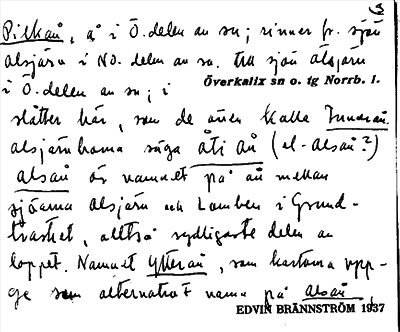 3
Pilkån, å i Ö. delen av sn; rinner fr. sjön
Alsjärv i NO. delen av sn. till sjön Alsjärv
i Ö. delen av sn; i
Överkalix sn o. tg Norrb. l.
slåtter här, som de även kalla Innerån.
alsjärvborna säga åti ån (el. Alsån?)
Alsån är namnet på ån mellan
sjöarna Alsjärv och Lomben i Grund-
träsket, alltså sydligaste delen av
loppet. Namnet Ytterån, som kartorna upp-
ge som alternativt namn på Alsån,
EDVIN BRÄNNSTRÖM 1937